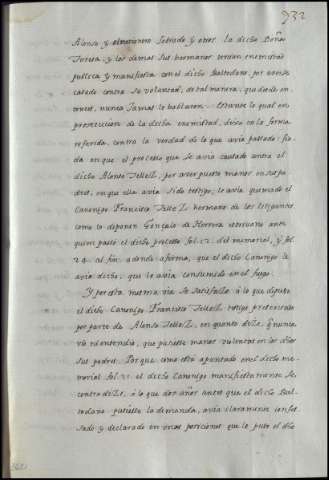 932
Alonso y el rreceptor Sobrado y otros. la dicha Doña
Teresa, y los demas sus hermanos tenian enemistad
publica y manifiesta con el dicho Baltodano, por averse
casado contra su voluntad, de tal manera, que desde en-
tonces, nunca Jamas le hablaron. Estante lo qual en
prosecucion de la dicha enemistad, dixo en la forma
referida, contra la verdad de lo que avia passado: fia-
da en que el processo que se avia causado contra el
dicho Alonso Tellez, por aver puesto manos en sus pa-
dres, en que ella avia sido testigo; le avia quemado el
Canonigo Francisco Tellez hermano de los litigantes
como lo deponen Gonçalo de Herrera escrivano ante
quien passo el dicho processo fol. 12. del memorial, y fol.
29. al fin. adonde afirma, que el dicho Canonigo le
avia dicho; que lo avia consumido en el fuego.
Y por esta mesma via se satisfaze à lo que depuso
el dicho Canonigo Francisco Tellez testigo presentado
por parte de Alonso Tellez, en quanto dize, que nunca
vio ni entendio, que pusiese manos violentas en los dichos
sus padres. Porque como està apuntado en el dicho me-
morial fol. 21. el dicho Canonigo manifiestamente se
contradize, à lo que dos años antes que el dicho Bal-
todano pusiesse la demanda, avia claramente confes-
sado y declarado en unas posiciones que le puso el dicho